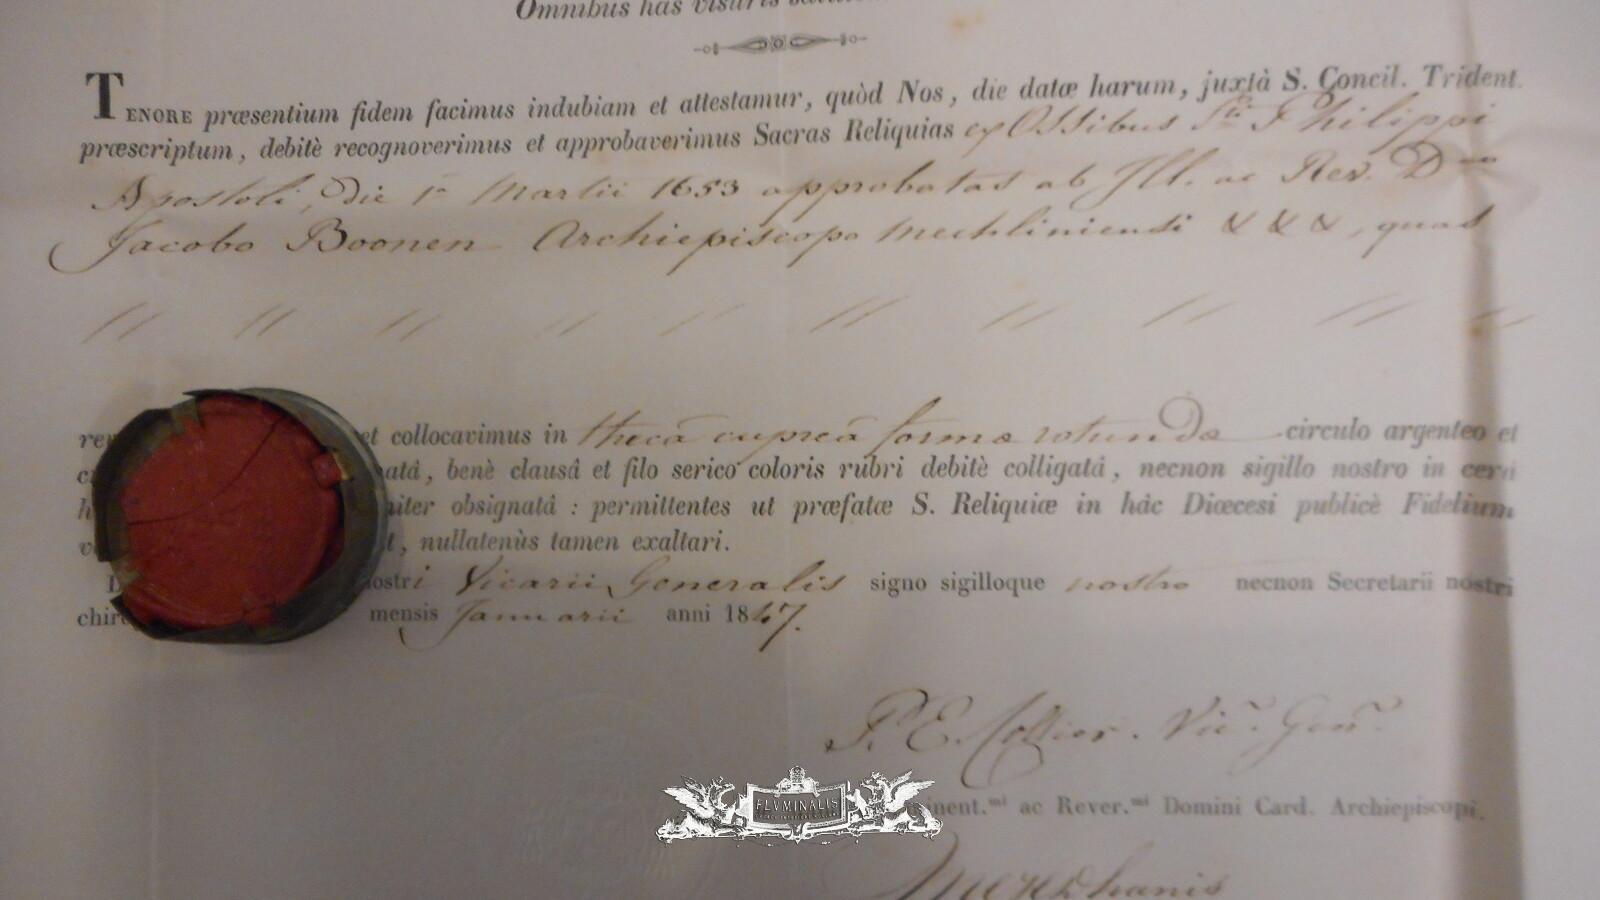 Omnibus has visuris
TENORE præsentium fidem facimus indubiam et attestamur, quòd Nos, die datæ harum, juxtà S. Concil. Trident.
præscriptum, debitè recognoverimus et approbaverimus Sacras Reliquias ex Ossibus Sti Philippi
Apostoli, die 1a Martii 1653 approbatas ab Ill. ac Rev. Dno
Jacobo Boonen Archiepiscopo Mechliniensi & & &, quas
et collocavimus in thecâ cupreâ forma rotunda circulo argenteo et
natâ, benè clausâ et filo serico coloris rubri debitè colligatâ, necnon sigillo nostro in cerâ
niter obsignatâ : permittentes ut præfatæ S. Reliquiæ in hâc Diœcesi publicè Fidelium
t, nullatenùs tamen exaltari.
nostri Vicarii Generalis signo sigilloque nostro necnon Secretarii nostri
chiro mensis Januarii anni 1847.
P. E. Collier. Vic. Gen.
inent.mi ac Rever.mi Domini Card. Archiepiscopi.
FLVMINALIS